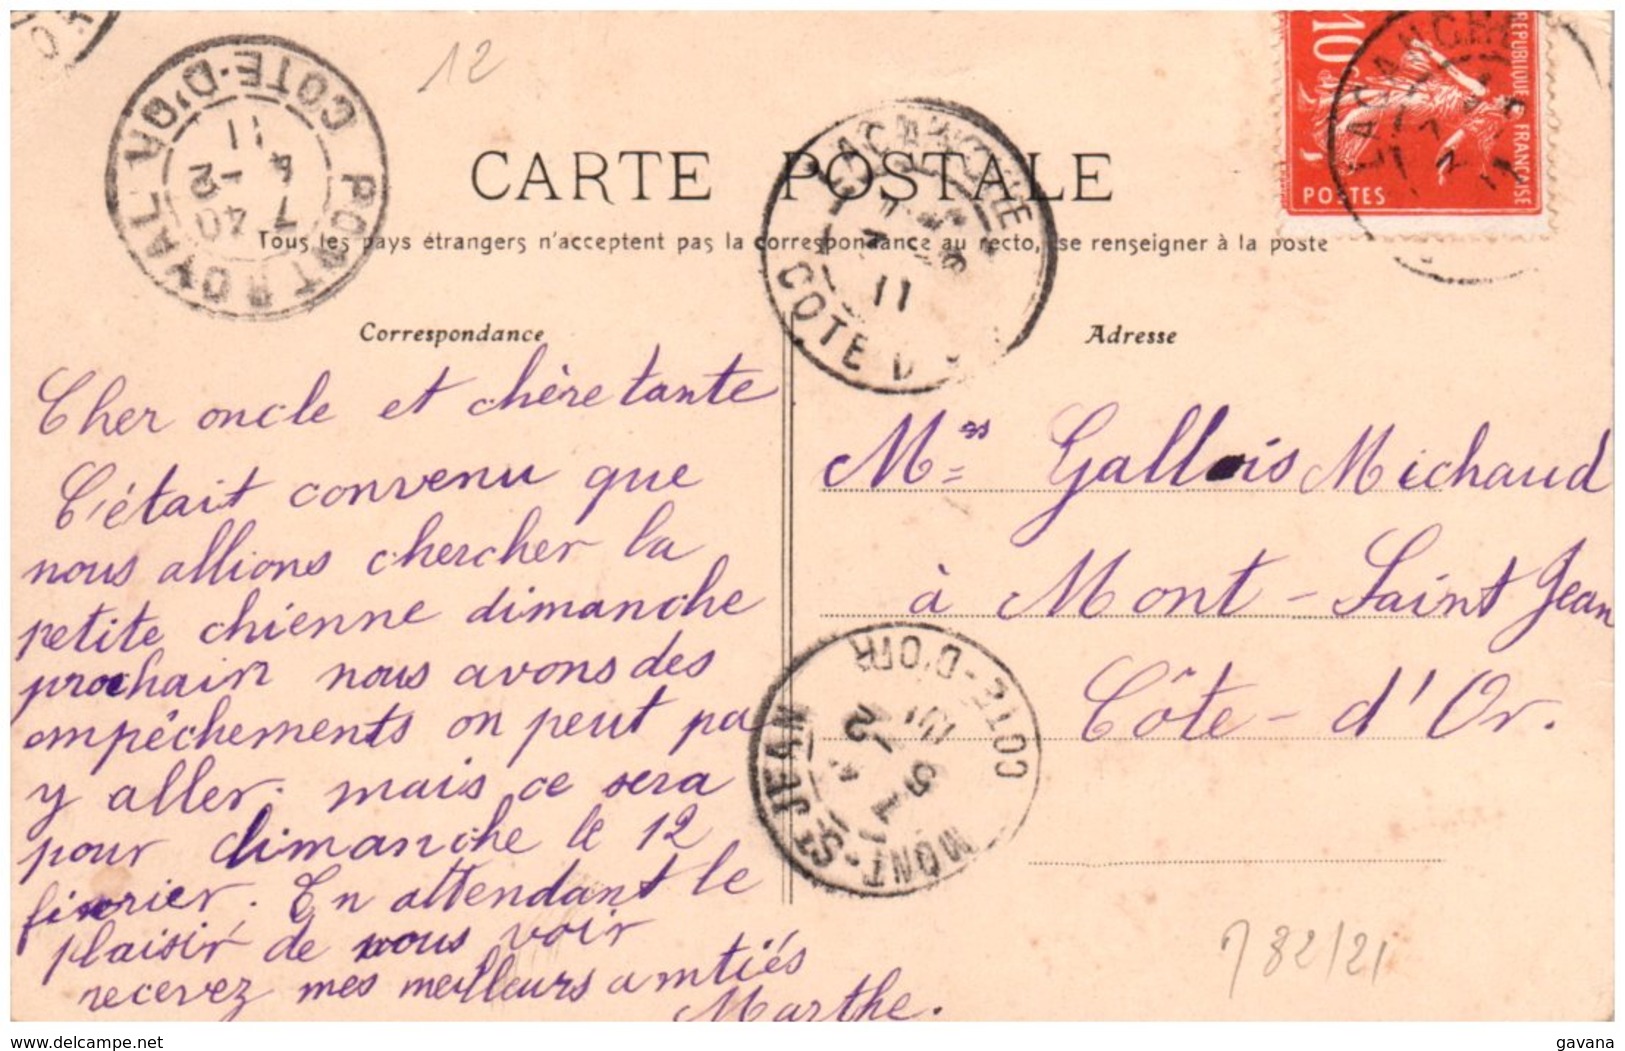 12
PONT ROYAL
COTE-D'OR
7 40
4 - 2
11
CARTE POSTALE
Tous les pays étrangers n'acceptent pas la correspondance au recto, se renseigner à la poste
LACANCHE
COTE D
11
10c
REPUBLIQUE FRANÇAISE
POSTES
LACANCHE
Correspondance
Cher oncle et chère tante
C'était convenu que
nous allions chercher la
petite chienne dimanche
prochain nous avons des
empéchements on peut pa
y aller. mais ce sera
pour dimanche le 12
fivrier. En attendant le
plaisir de vous voir
recevez mes meilleurs amtiés
Marthe.
Adresse
Mrs Gallois Michaud
à Mont-Saint Jean
Côte-d'Or.
MONT-ST-JEAN
COTE-D'OR
782/21
delcampe.net
gavana